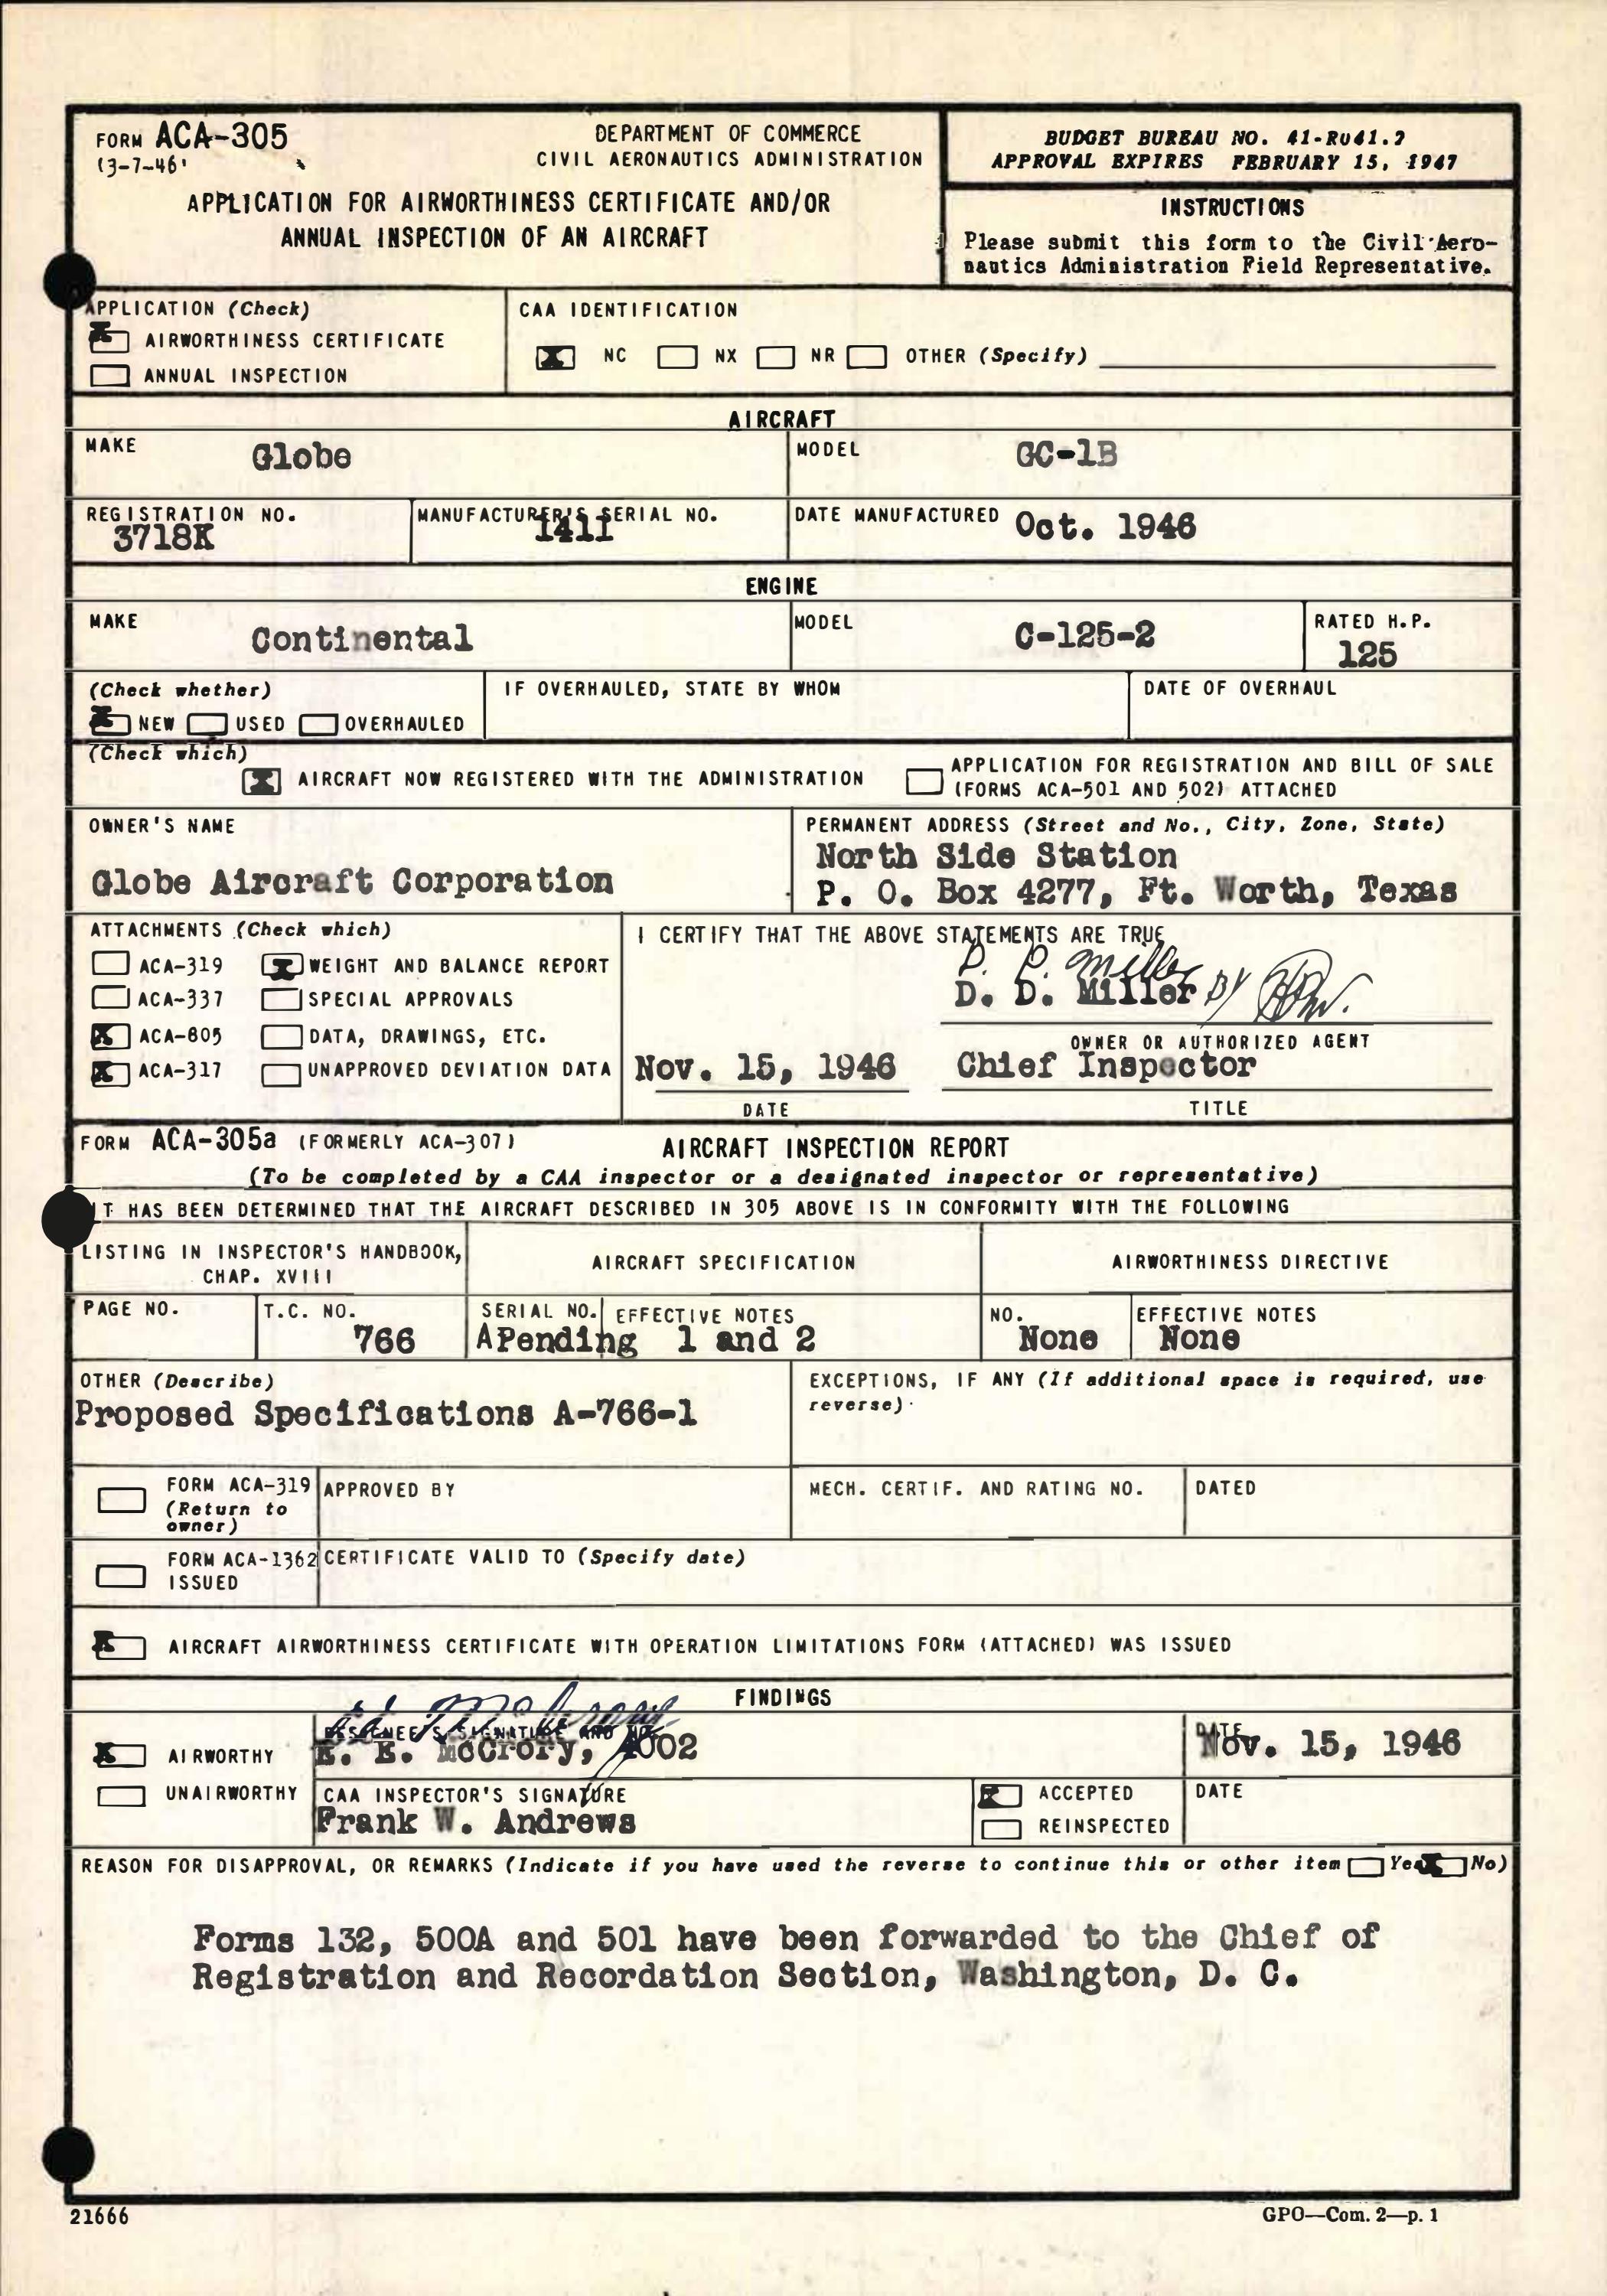 FORM ACA-305
(3-7-46)
DEPARTMENT OF COMMERCE
CIVIL AERONAUTICS ADMINISTRATION
APPLICATION FOR AIRWORTHINESS CERTIFICATE AND/OR
ANNUAL INSPECTION OF AN AIRCRAFT
BUDGET BUREAU NO. 41-R041.2
APPROVAL EXPIRES FEBRUARY 15, 1947
INSTRUCTIONS
Please submit this form to the Civil Aero-
nautics Administration Field Representative.
APPLICATION (Check)
X AIRWORTHINESS CERTIFICATE
ANNUAL INSPECTION
CAA IDENTIFICATION
X NC NX NR OTHER (Specify)
AIRCRAFT
MAKE Globe
MODEL GC-1B
REGISTRATION NO.
3718K
MANUFACTURER'S SERIAL NO.
1411
DATE MANUFACTURED Oct. 1946
ENGINE
MAKE Continental
MODEL C-125-2
RATED H.P.
125
(Check whether)
X NEW USED OVERHAULED
IF OVERHAULED, STATE BY WHOM
DATE OF OVERHAUL
(Check which)
X AIRCRAFT NOW REGISTERED WITH THE ADMINISTRATION
APPLICATION FOR REGISTRATION AND BILL OF SALE
(FORMS ACA-501 AND 502) ATTACHED
OWNER'S NAME
Globe Aircraft Corporation
PERMANENT ADDRESS (Street and No., City, Zone, State)
North Side Station
P. O. Box 4277, Ft. Worth, Texas
ATTACHMENTS (Check which)
ACA-319 X WEIGHT AND BALANCE REPORT
ACA-337 SPECIAL APPROVALS
X ACA-805 DATA, DRAWINGS, ETC.
X ACA-317 UNAPPROVED DEVIATION DATA
I CERTIFY THAT THE ABOVE STATEMENTS ARE TRUE
D. D. Miller
D. D. Miller BY
OWNER OR AUTHORIZED AGENT
Nov. 15, 1946 Chief Inspector
DATE TITLE
FORM ACA-305a (FORMERLY ACA-307) AIRCRAFT INSPECTION REPORT
(To be completed by a CAA inspector or a designated inspector or representative)
IT HAS BEEN DETERMINED THAT THE AIRCRAFT DESCRIBED IN 305 ABOVE IS IN CONFORMITY WITH THE FOLLOWING
LISTING IN INSPECTOR'S HANDBOOK,
CHAP. XVIII
AIRCRAFT SPECIFICATION
AIRWORTHINESS DIRECTIVE
PAGE NO. T.C. NO. SERIAL NO. EFFECTIVE NOTES NO. EFFECTIVE NOTES
766 APending 1 and 2 None None
OTHER (Describe)
Proposed Specifications A-766-1
EXCEPTIONS, IF ANY (If additional space is required, use
reverse)
FORM ACA-319
(Return to
owner)
APPROVED BY
MECH. CERTIF. AND RATING NO.
DATED
FORM ACA-1362
ISSUED
CERTIFICATE VALID TO (Specify date)
X AIRCRAFT AIRWORTHINESS CERTIFICATE WITH OPERATION LIMITATIONS FORM (ATTACHED) WAS ISSUED
FINDINGS
X AIRWORTHY
UNAIRWORTHY
DESIGNEE'S SIGNATURE AND NO.
E. E. McCrory, 4002
DATE
Nov. 15, 1946
CAA INSPECTOR'S SIGNATURE
Frank W. Andrews
X ACCEPTED
REINSPECTED
DATE
REASON FOR DISAPPROVAL, OR REMARKS (Indicate if you have used the reverse to continue this or other item Yes X No)
Forms 132, 500A and 501 have been forwarded to the Chief of
Registration and Recordation Section, Washington, D. C.
21666
GPO—Com. 2—p. 1